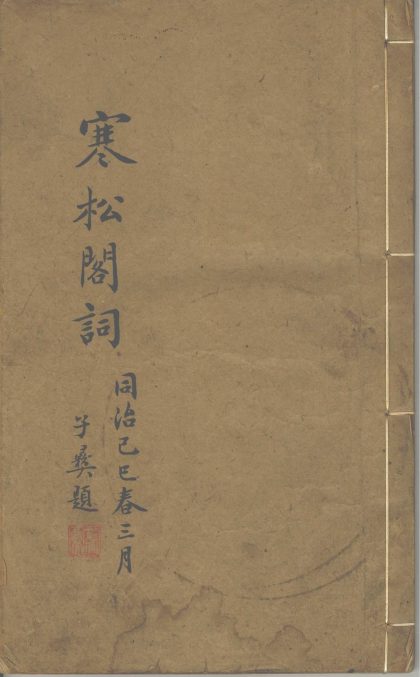 寒松閣詞
同治己巳春三月
子彝題